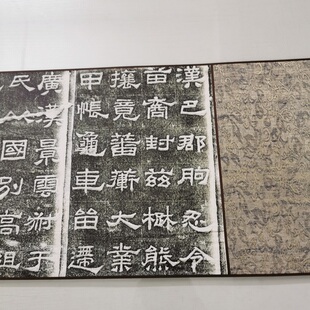 漢巴郡朐忍令
苗裔封茲楙熊
攘竟蕃衛大業
甲帳龜車留遰
廣漢景雲叔于
氏國別高祖